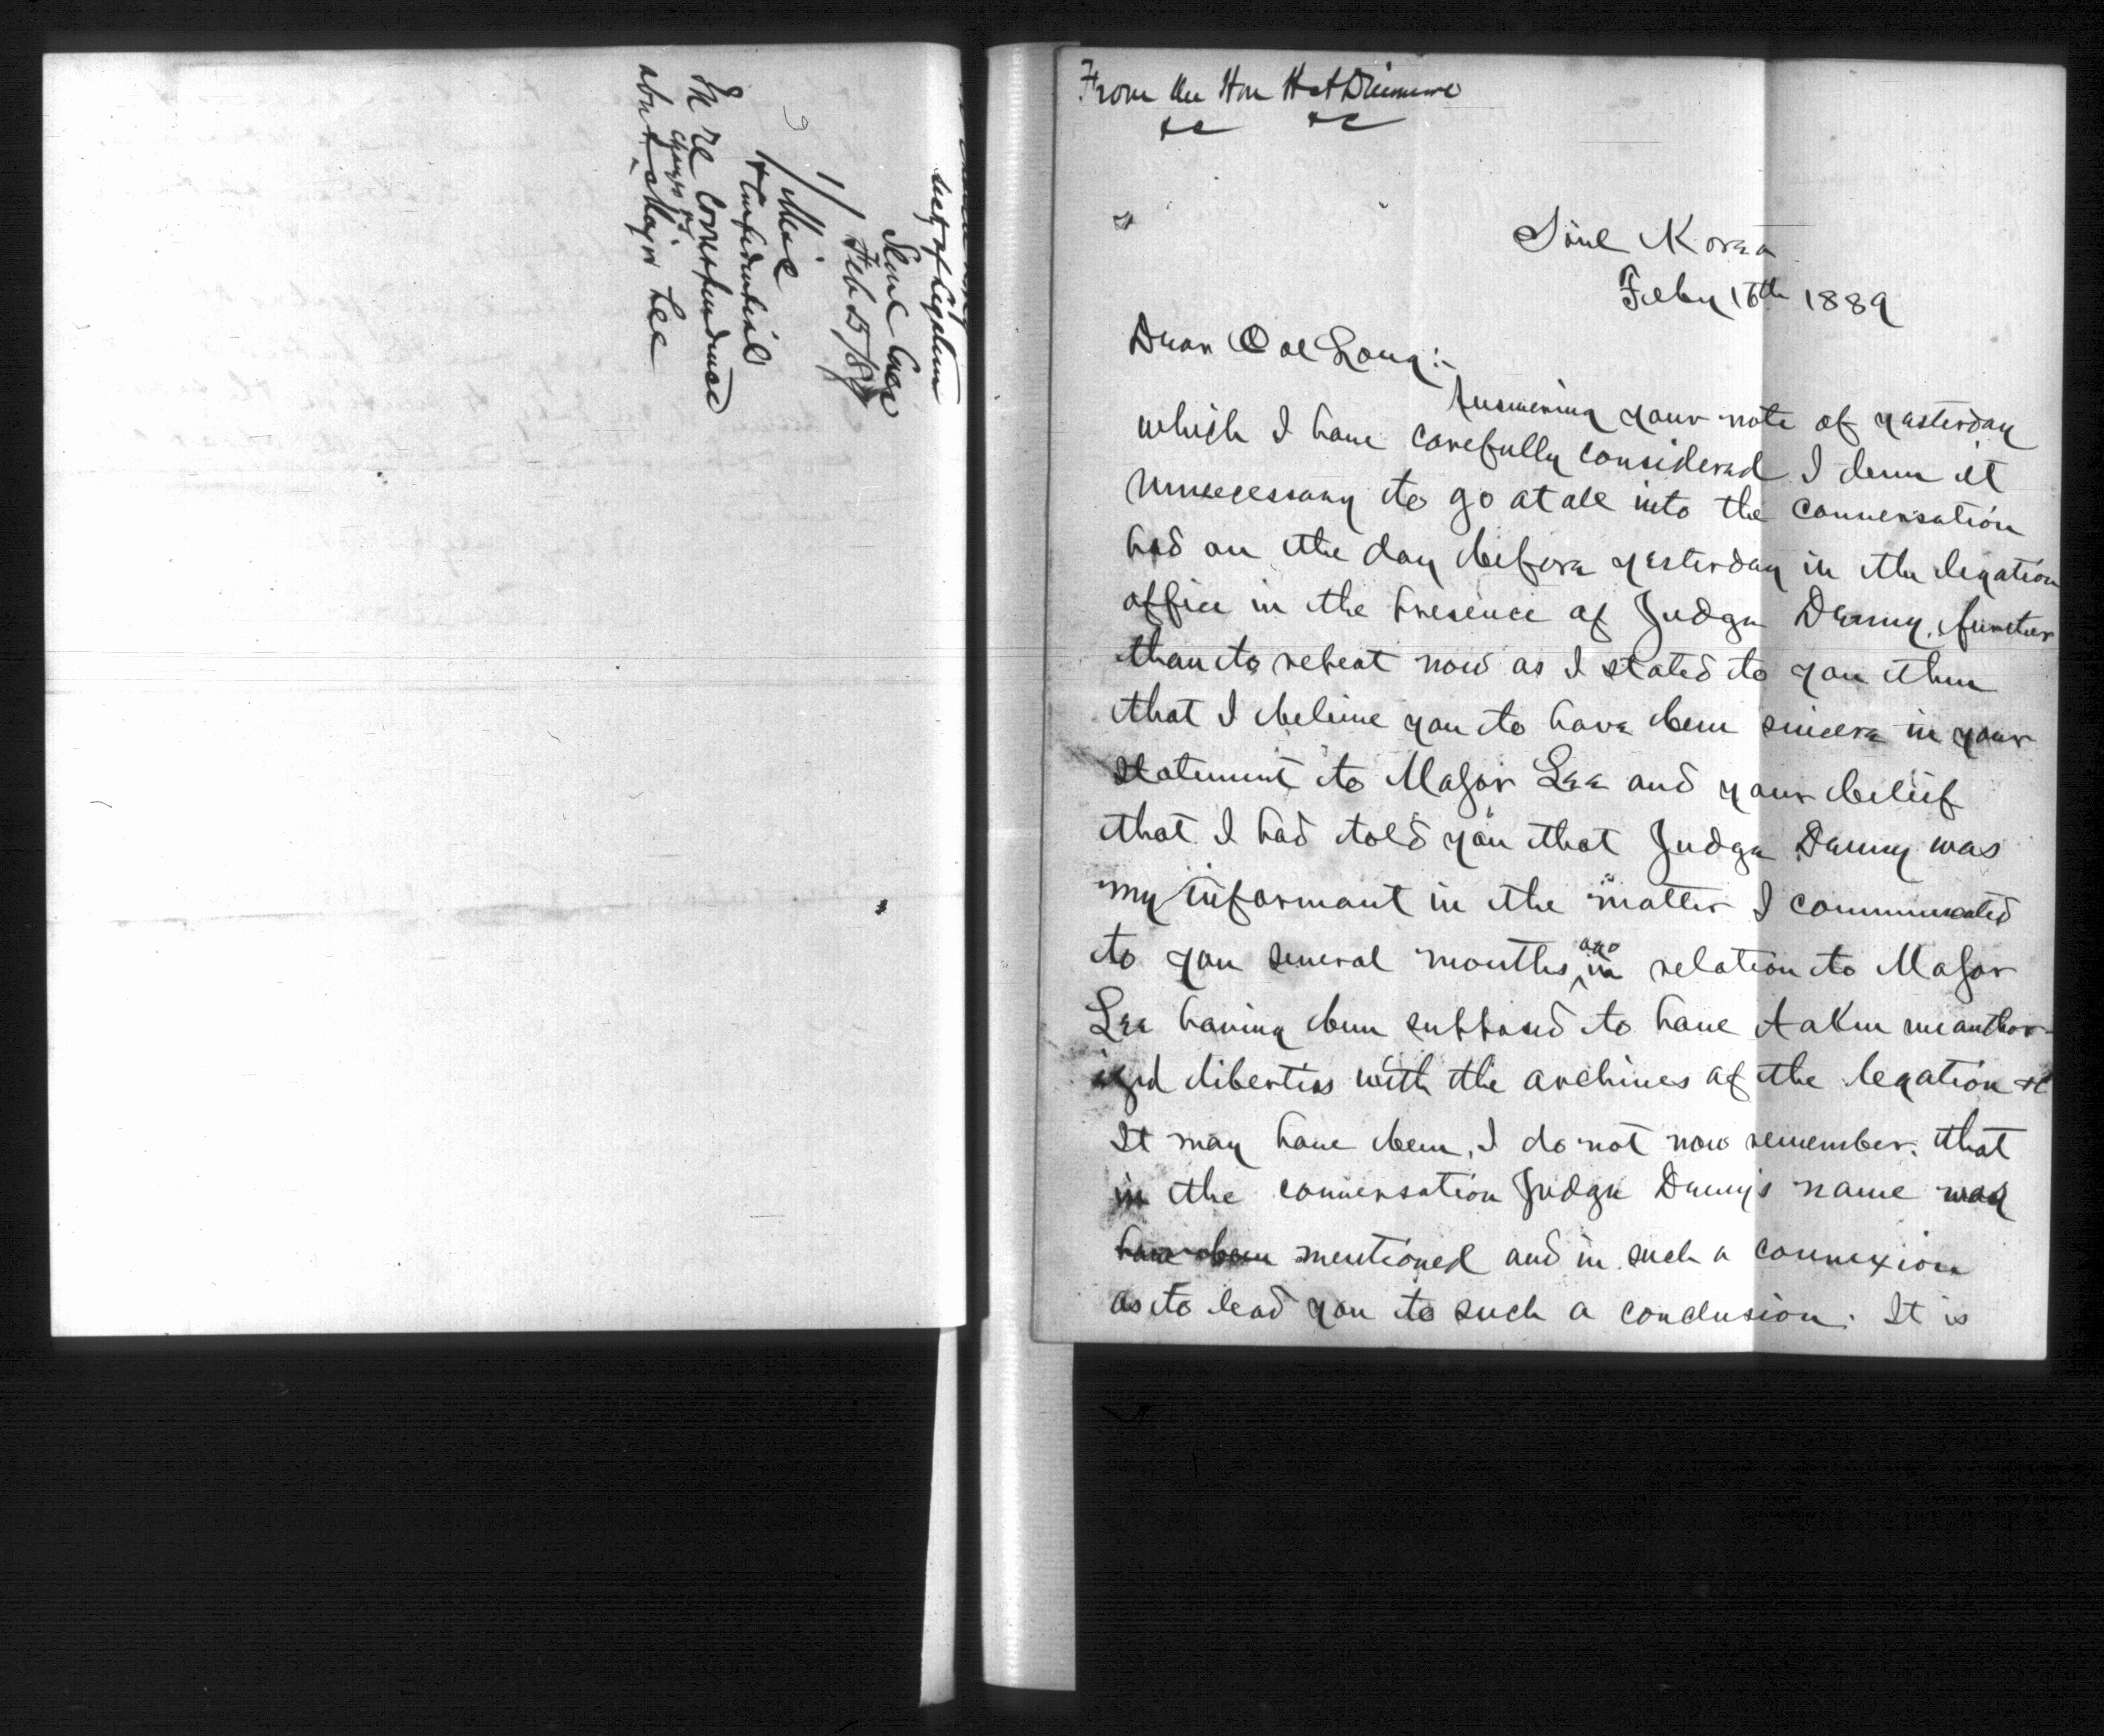 Secy of Legation
Seoul Corea
Feb 15/89
Misc
& Confidential
In re Correspondence
charges vs.
about Major Lee
From the Hon H A Dinsmore
&c &c
Söul Korea
Feby 16th 1889
Dear Col Long:-
Answering your note of yesterday
which I have carefully considered I deem it
unnecessary to go at all into the conversation
had on the day before yesterday in the legation
office in the presence of Judge Denny, further
than to repeat now as I stated to you then
that I believe you to have been sincere in your
statement to Major Lee and your belief
that I had told you that Judge Denny was
my informant in the matter I communicated
to you several months ago in relation to Major
Lee having been supposed to have taken unauthor-
ized liberties with the archives of the legation &c
It may have been, I do not now remember, that
in the conversation Judge Denny's name was
have been mentioned and in such a connexion
as to lead you to such a conclusion. It is